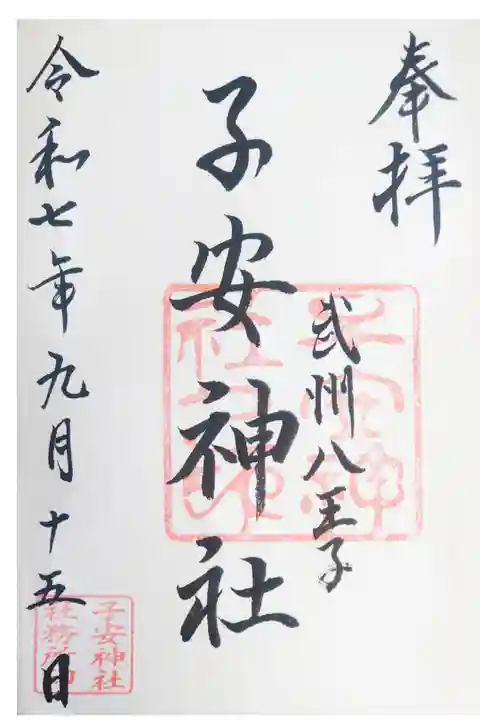 奉拝
武州八王子
子安神社
子安神社印
令和七年九月十五日
子安神社
社務所印